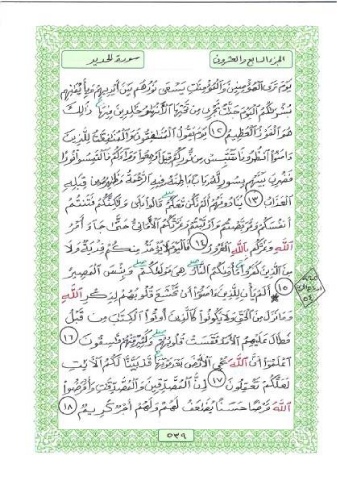 الجزء السابع والعشرون
سورة الحديد
يَوْمَ تَرَى الْمُؤْمِنِينَ وَالْمُؤْمِنَٰتِ يَسْعَىٰ نُورُهُم بَيْنَ أَيْدِيهِمْ وَبِأَيْمَٰنِهِم
بُشْرَىٰكُمُ الْيَوْمَ جَنَّٰتٌ تَجْرِي مِن تَحْتِهَا الْأَنْهَٰرُ خَٰلِدِينَ فِيهَا ذَٰلِكَ
هُوَ الْفَوْزُ الْعَظِيمُ ١٢ يَوْمَ يَقُولُ الْمُنَٰفِقُونَ وَالْمُنَٰفِقَٰتُ لِلَّذِينَ
ءَامَنُوا انظُرُونَا نَقْتَبِسْ مِن نُّورِكُمْ قِيلَ ارْجِعُوا وَرَاءَكُمْ فَالْتَمِسُوا نُورًا
فَضُرِبَ بَيْنَهُم بِسُورٍ لَّهُ بَابٌ بَاطِنُهُ فِيهِ الرَّحْمَةُ وَظَٰهِرُهُ مِن قِبَلِهِ
الْعَذَابُ ١٣ يُنَادُونَهُمْ أَلَمْ نَكُن مَّعَكُمْ قَالُوا بَلَىٰ وَلَٰكِنَّكُمْ فَتَنتُمْ
أَنفُسَكُمْ وَتَرَبَّصْتُمْ وَارْتَبْتُمْ وَغَرَّتْكُمُ الْأَمَانِيُّ حَتَّىٰ جَاءَ أَمْرُ
اللَّهِ وَغَرَّكُم بِاللَّهِ الْغَرُورُ ١٤ فَالْيَوْمَ لَا يُؤْخَذُ مِنكُمْ فِدْيَةٌ وَلَا
مِنَ الَّذِينَ كَفَرُوا مَأْوَىٰكُمُ النَّارُ هِيَ مَوْلَىٰكُمْ وَبِئْسَ الْمَصِيرُ
١٥ أَلَمْ يَأْنِ لِلَّذِينَ ءَامَنُوا أَن تَخْشَعَ قُلُوبُهُمْ لِذِكْرِ اللَّهِ
وَمَا نَزَلَ مِنَ الْحَقِّ وَلَا يَكُونُوا كَالَّذِينَ أُوتُوا الْكِتَٰبَ مِن قَبْلُ
فَطَالَ عَلَيْهِمُ الْأَمَدُ فَقَسَتْ قُلُوبُهُمْ وَكَثِيرٌ مِّنْهُمْ فَٰسِقُونَ ١٦
اعْلَمُوا أَنَّ اللَّهَ يُحْيِ الْأَرْضَ بَعْدَ مَوْتِهَا قَدْ بَيَّنَّا لَكُمُ الْأيَٰتِ
لَعَلَّكُمْ تَعْقِلُونَ ١٧ إِنَّ الْمُصَّدِّقِينَ وَالْمُصَّدِّقَٰتِ وَأَقْرَضُوا
اللَّهَ قَرْضًا حَسَنًا يُضَٰعَفُ لَهُمْ وَلَهُمْ أَجْرٌ كَرِيمٌ ١٨
٥٣٩